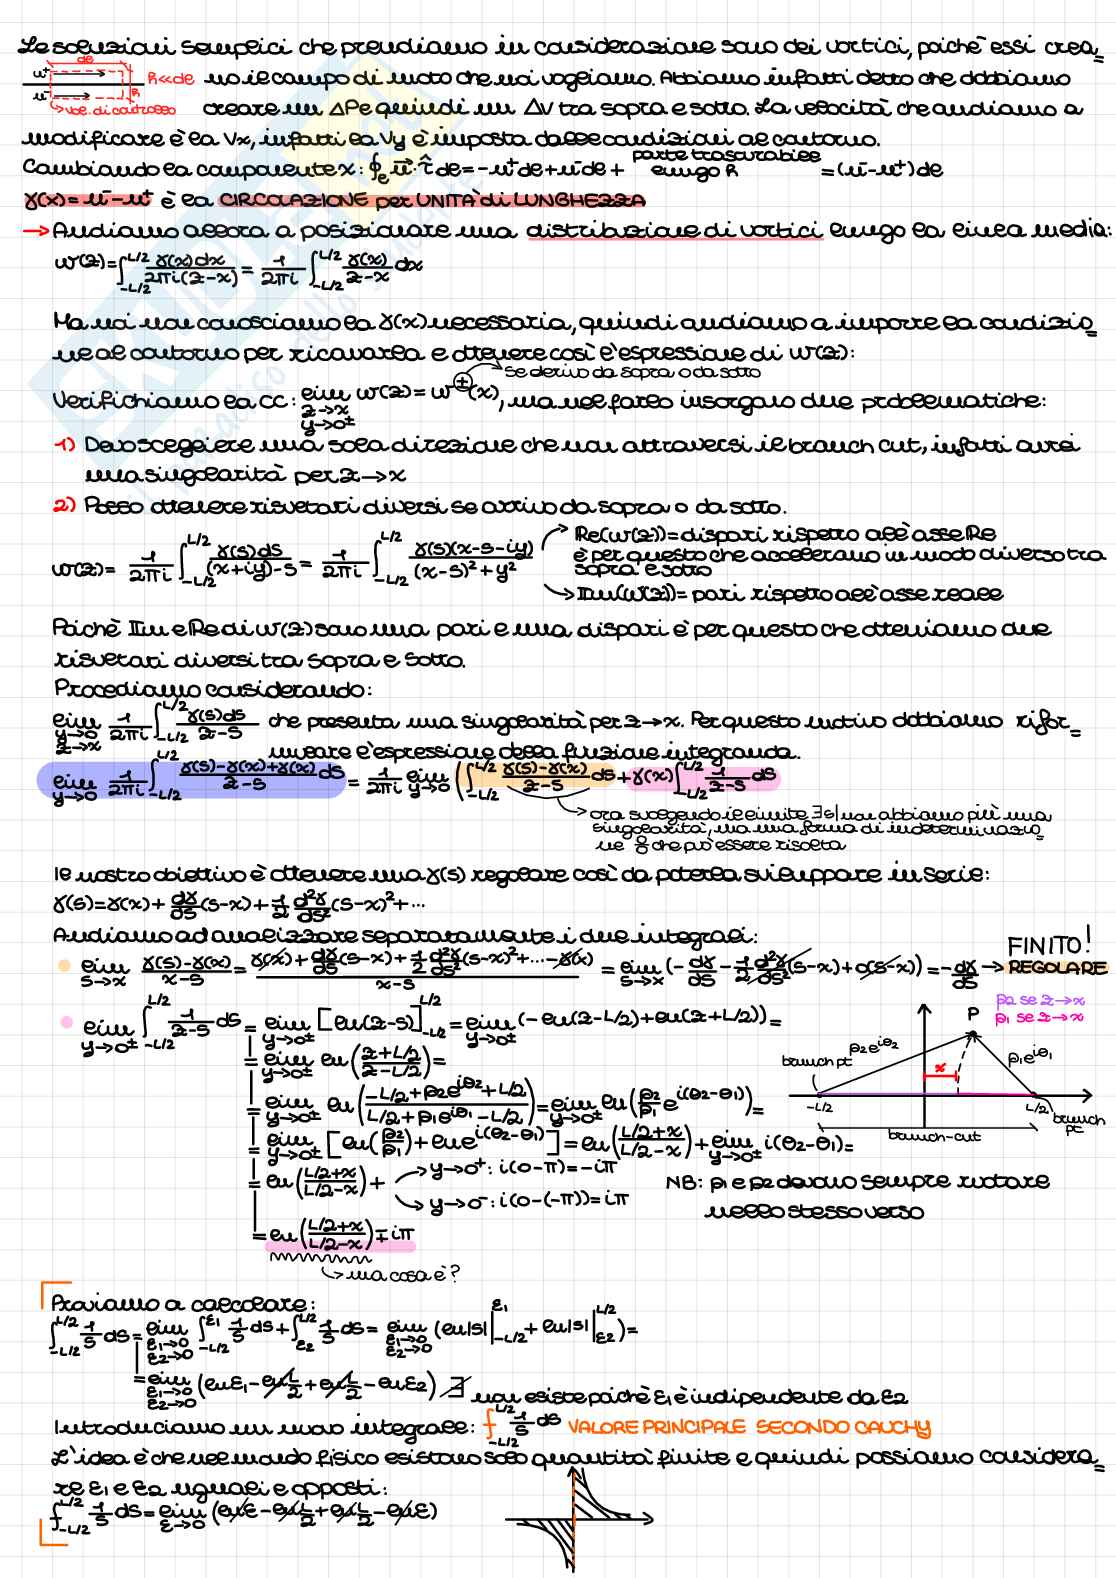 Le soluzioni semplici che prendiamo in considerazione sono dei vortici, poichè essi crea=
no il campo di moto che noi vogliamo. Abbiamo infatti detto che dobbiamo
creare un ΔPe quindi un ΔV tra sopra e sotto. La velocità che andiamo a
u⁺ dl h<<dl
u⁻ h
→ vol. di controllo
modificare è la Vx, infatti la Vy è imposta dalle condizioni al contorno.
Cambiando la componente x: ∮ₑ u⃗·τ̂ dl = -u⁺dl + u⁻dl + parte trascurabile lungo h = (u⁻-u⁺)dl
γ(x) = u⁻-u⁺ è la CIRCOLAZIONE per UNITÀ di LUNGHEZZA
→ Andiamo allora a posizionare una distribuzione di vortici lungo la linea media:
w(z) = ∫_{-L/2}^{L/2} γ(x)dx/2πi(z-x) = 1/2πi ∫_{-L/2}^{L/2} γ(x)/z-x dx
Ma noi non conosciamo la γ(x) necessaria, quindi andiamo a imporre la condizio=
ne al contorno per ricavarla e ottenere così l'espressione di w(z):
→ se derivo da sopra o da sotto
Verifichiamo la CC: lim_{z→x, y→0±} w(z) = w^±(x), ma nel farlo insorgono due problematiche:
1) Devo scegliere una sola direzione che non attraversi il branch cut, infatti avrei
una singolarità per z→x
2) Posso ottenere risultati diversi se arrivo da sopra o da sotto.
w(z) = 1/2πi ∫_{-L/2}^{L/2} γ(s)ds/(x+iy)-s = 1/2πi ∫_{-L/2}^{L/2} γ(s)(x-s-iy)/(x-s)²+y²
→ Re(w(z)) = dispari rispetto all'asse Re
è per questo che accelerano in modo diverso tra
sopra e sotto
→ Im(w(z)) = pari rispetto all'asse reale
Poichè Im e Re di w(z) sono una pari e una dispari è per questo che otteniamo due
risultati diversi tra sopra e sotto.
Procediamo considerando:
lim_{y→0, z→x} 1/2πi ∫_{-L/2}^{L/2} γ(s)ds/z-s che presenta una singolarità per z→x. Per questo motivo dobbiamo rifor=
mulare l'espressione della funzione integranda.
lim_{y→0} 1/2πi ∫_{-L/2}^{L/2} γ(s)-γ(x)+γ(x)/z-s ds = 1/2πi lim_{y→0} (∫_{-L/2}^{L/2} γ(s)-γ(x)/z-s ds + γ(x)∫_{-L/2}^{L/2} 1/z-s ds
→ ora svolgendo il limite ∃ s| non abbiamo più una
singolarità, ma una forma di indeterminazio=
ne 0/0 che può essere risolta
Il nostro obiettivo è ottenere una γ(s) regolare così da poterla sviluppare in serie:
γ(s) = γ(x) + dγ/ds (s-x) + 1/2 d²γ/ds² (s-x)² + ...
Andiamo ad analizzare separatamente i due integrali:
FINITO!
• lim_{s→x} γ(s)-γ(x)/x-s = γ(x) + dγ/ds (s-x) + 1/2 d²γ/ds² (s-x)² + ... - γ(x)/x-s = lim_{s→x} (-dγ/ds - 1/2 d²γ/ds² (s-x) + o(s-x)) = -dγ/ds → REGOLARE
• lim_{y→0±} ∫_{-L/2}^{L/2} 1/z-s ds = lim_{y→0±} [ln(z-s)]_{-L/2}^{L/2} = lim_{y→0±} (-ln(z-L/2) + ln(z+L/2)) =
= lim_{y→0±} ln(z+L/2/z-L/2) =
= lim_{y→0±} ln(-L/2+ρ2e^{iθ2}+L/2/L/2+ρ1e^{iθ1}-L/2) = lim_{y→0±} ln(ρ2/ρ1 e^{i(θ2-θ1)}) =
= lim_{y→0±} [ln(ρ2/ρ1) + ln e^{i(θ2-θ1)}] = ln(L/2+x/L/2-x) + lim_{y→0±} i(θ2-θ1) =
= ln(L/2+x/L/2-x) + → y→0⁺: i(0-π) = -iπ
→ y→0⁻: i(0-(-π)) = iπ
= ln(L/2+x/L/2-x) ∓ iπ
→ ma cosa è?
ρ2 se z→x
ρ1 se z→x
P
ρ2e^{iθ2}
ρ1e^{iθ1}
branch pt
x
-L/2
L/2
branch pt
branch-cut
NB: ρ1 e ρ2 devono sempre ruotare
nello stesso verso
Proviamo a calcolare:
∫_{-L/2}^{L/2} 1/s ds = lim_{ε1→0, ε2→0} ∫_{-L/2}^{ε1} 1/s ds + ∫_{ε2}^{L/2} 1/s ds = lim_{ε1→0, ε2→0} (ln|s| |_{-L/2}^{ε1} + ln|s| |_{ε2}^{L/2}) =
= lim_{ε1→0, ε2→0} (lnε1 - ln L/2 + ln L/2 - lnε2) ∄ non esiste poichè ε1 è indipendente da ε2
Introduciamo un nuovo integrale: ⨍_{-L/2}^{L/2} 1/s ds VALORE PRINCIPALE SECONDO CAUCHY
L'idea è che nel mondo fisico esistono solo quantità finite e quindi possiamo considera=
re ε1 e ε2 uguali e opposti:
⨍_{-L/2}^{L/2} 1/s ds = lim_{ε→0} (lnε - ln L/2 + ln L/2 - lnε)